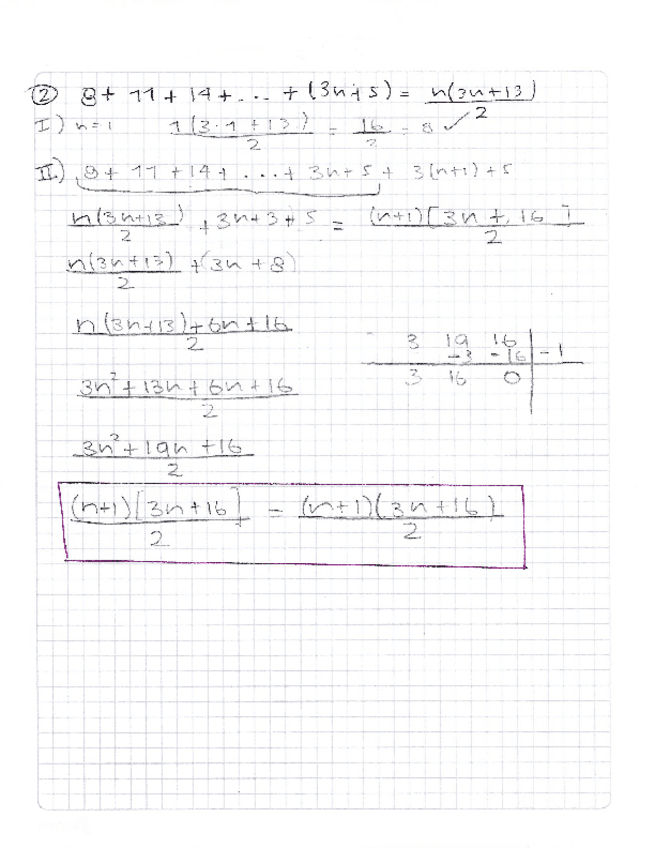 ② 8+ 11 + 14 + ... + (3n+5) = n(3n+13)/2
I) n=1 1(3·1+13)/2 = 16/2 = 8 ✓
II) 8+ 11 + 14 + ... + 3n+5 + 3(n+1)+5
n(3n+13)/2 + 3n+3+5 = (n+1)[3n+16]/2
n(3n+13)/2 +(3n+8)
n(3n+13)+6n+16/2
3 19 16
-3 -16 -1
3 16 0
3n²+13n+6n+16/2
3n²+19n+16/2
(n+1)[3n+16]/2 = (n+1)(3n+16)/2